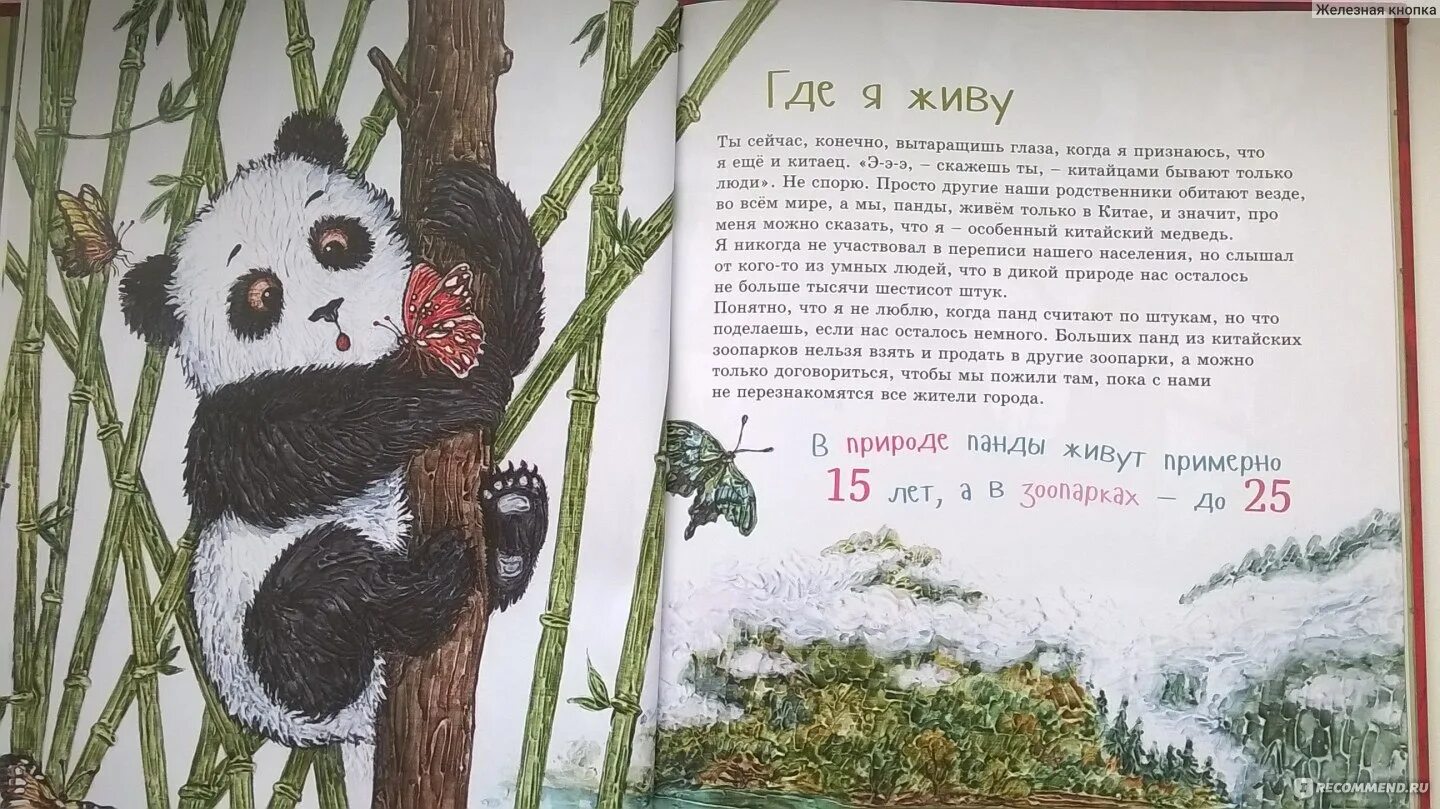 Железная кнопка
Где я живу
Ты сейчас, конечно, вытаращишь глаза, когда я признаюсь, что
я ещё и китаец. «Э-э-э, – скажешь ты, – китайцами бывают только
люди». Не спорю. Просто другие наши родственники обитают везде,
во всём мире, а мы, панды, живём только в Китае, и значит, про
меня можно сказать, что я – особенный китайский медведь.
Я никогда не участвовал в переписи нашего населения, но слышал
от кого-то из умных людей, что в дикой природе нас осталось
не больше тысячи шестисот штук.
Понятно, что я не люблю, когда панд считают по штукам, но что
поделаешь, если нас осталось немного. Больших панд из китайских
зоопарков нельзя взять и продать в другие зоопарки, а можно
только договориться, чтобы мы пожили там, пока с нами
не перезнакомятся все жители города.
В природе панды живут примерно
15 лет, а в зоопарках – до 25
RECOMMEND.RU